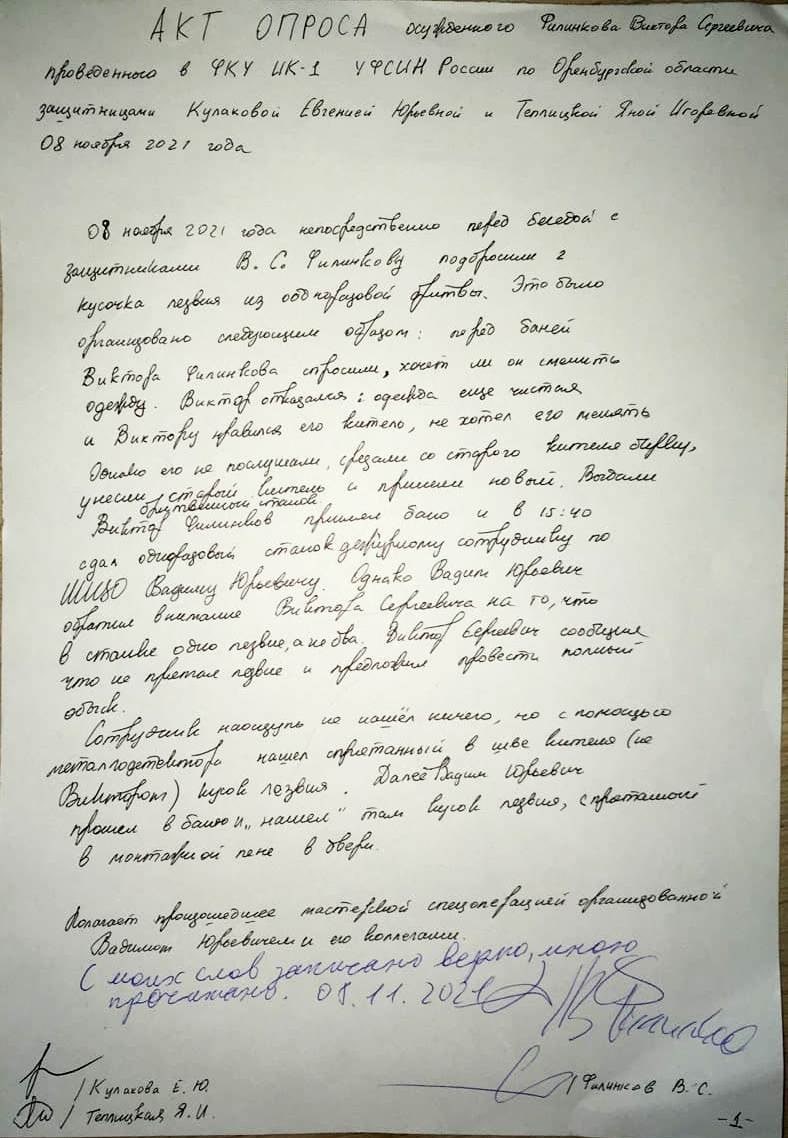 АКТ ОПРОСА осужденного Филинкова Виктора Сергеевича
проведенного в ФКУ ИК-1 УФСИН России по Оренбургской области
защитницами Кулаковой Евгенией Юрьевной и Теплицкой Яной Игоревной
08 ноября 2021 года
08 ноября 2021 года непосредственно перед беседой с
защитниками В. С. Филинкову подбросили 2
кусочка лезвия из одноразовой бритвы. Это было
организовано следующим образом: перед баней
Виктора Филинкова спросили, хочет ли он сменить
одежду. Виктор отказался: одежда еще чистая
и Виктору нравился его китель, не хотел его менять
Однако его не послушали, срезали со старого кителя бирку,
унесли старый китель и принесли новый. Выдали
бритвенный станок
Виктор Филинков принял баню и в 15:40
сдал одноразовый станок дежурному сотруднику по
ШИЗО Вадиму Юрьевичу. Однако Вадим Юрьевич
обратил внимание Виктора Сергеевича на то, что
в станке одно лезвие, а не два. Виктор Сергеевич сообщил
что не прятал лезвие и предложил провести полный
обыск.
Сотрудник наощупь не нашёл ничего, но с помощью
металлодетектора нашел спрятанный в шве кителя (не
Виктором) кусок лезвия. Далее Вадим Юрьевич
прошел в баню и „нашел" там кусок лезвия, спрятанный
в монтажной пене в двери.
Полагает произошедшее мастерской спецоперацией организованной
Вадимом Юрьевичем и его коллегами.
С моих слов записано верно, мною
прочитано. 08.11.2021
/Кулакова Е. Ю.
/Филинков В. С.
/Теплицкая Я. И.
-1-